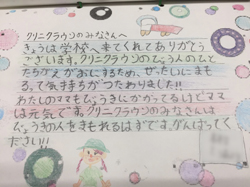 クリニクラウンのみなさんへ
きょうは学校へ来てくれてありがとう
ございます。クリニクラウンのひょう人のひと
たちがえがおにするため、ぜったいにまも
るって気持ちがつたわりました!!
わたしのママもびょうきにかかってるけどママ
は元気です。クリニクラウンのみなさんは
びょうきの人をまもれるはずです。がんばってく
ださい!!